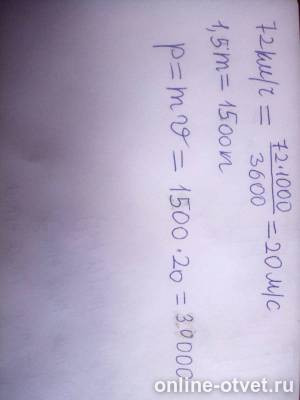 72км/ч = 72·1000/3600 = 20м/с
1,5т = 1500п
p = mϑ = 1500·20 = 30000
online-otvet.ru